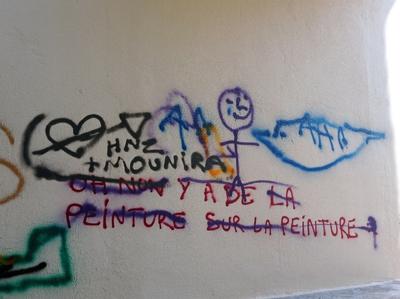 HNZ
+ MOUNIRA
OH NON Y A DE LA
PEINTURE SUR LA PEINTURE